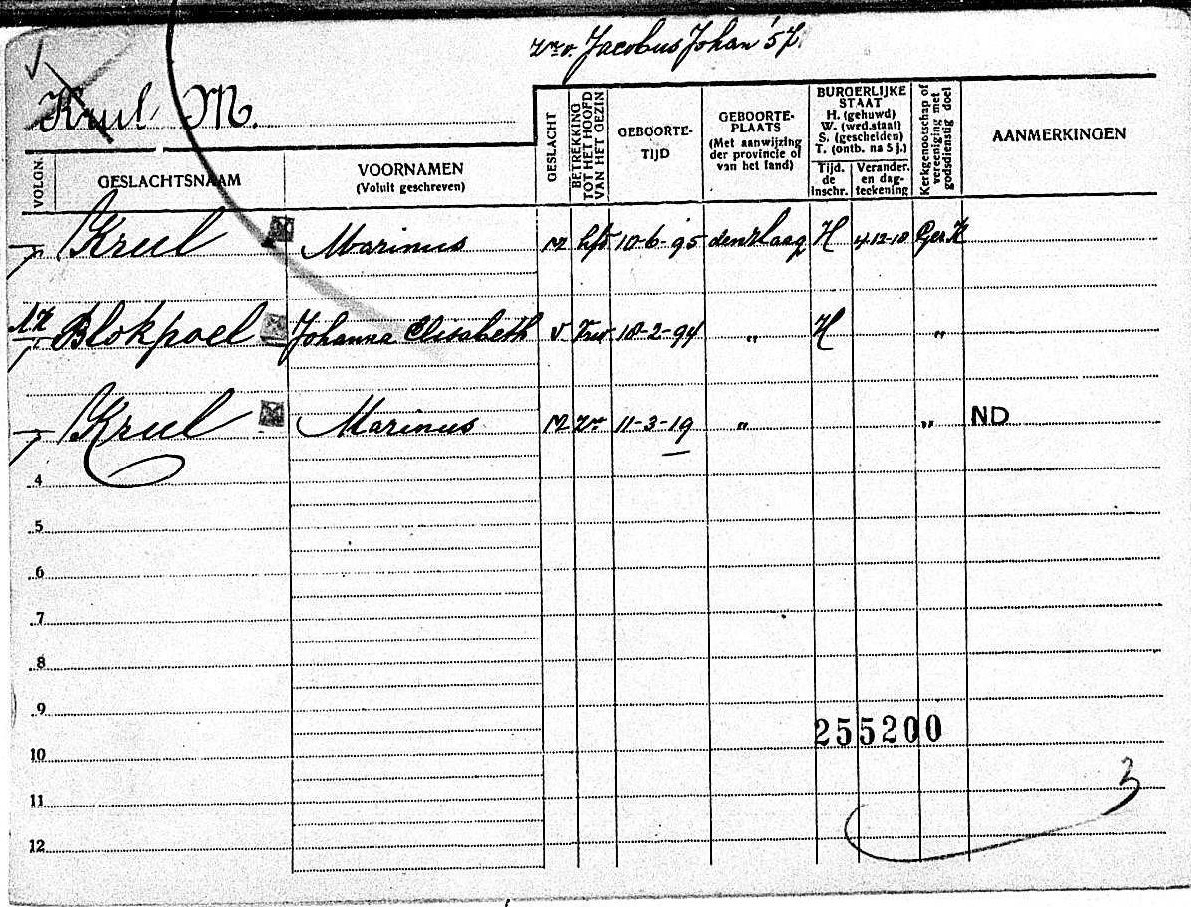 zn v. Jacobus Johan '57.
Krul M.
VOLGN.
GESLACHTSNAAM
VOORNAMEN
(Voluit geschreven)
GESLACHT
BETREKKING
TOT HET HOOFD
VAN HET GEZIN
GEBOORTE-
TIJD
GEBOORTE-
PLAATS
(Met aanwijzing
der provincie of
van het land)
BURGERLIJKE
STAAT
H. (gehuwd)
W. (wed.staat)
S. (gescheiden)
T. (ontb. na 5 j.)
Tijd.
de
inschr.
Verander.
en dag-
teekening
Kerkgenootschap of
vereeniging met
godsdienstig doel
AANMERKINGEN
Krul Marinus M hfd 10-6-95 den Haag H 4-12-18 Ger K
Blokpoel Johanna Elisabeth V Vrw 18-2-94 " H "
Krul Marinus M zn 11-3-19 " " ND
4
5
6
7
8
9
255200
10
3
11
12